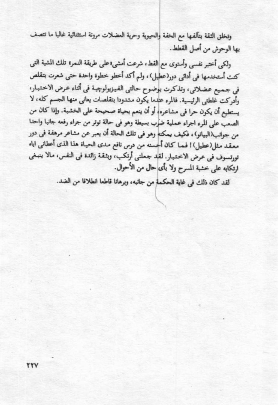 وتخلق الثقة بتآلفها مع الخفة والحيوية وحرية العضلات مرونة استثنائية غالبا ما تتصف بها الوحوش من أصل القطط.
ولكى أختبر نفسى وأستوى مع القط، شرعت أمشى على طريقة النمرة تلك المشية التى كنت أستخدمها فى أدائى دور (عطيل)، ولم أكد أخطو خطوة واحدة حتى شعرت بتقلص فى جميع عضلاتى، وتذكرت بوضوح حالتى الفيزيولوجية فى أثناء عرض الاختبار، وأدركت غلطتى الرئيسية. فالمرء عندما يكون مشدودا بتقلصات يعانى منها الجسم كله، لا يستطيع أن يكون حرا فى مشاعره، أو أن ينعم بحياة صحيحة على الخشبة. وإذا كان من الصعب على المرء اجراء عملية ضرب بسيطة وهو فى حالة توتر من جراء رفعه جانبا واحدا من جوانب (البيانو)، فكيف يمكنه وهو فى تلك الحالة أن يعبر عن مشاعر مرهفة فى دور معقد مثل (عطيل)! فما كان أحسنه من درس نافع مدى الحياة هذا الذى أعطانى اياه تورتسوف فى عرض الاختبار. لقد جعلنى أرتكب، وبثقة زائدة فى النفس، مالا ينبغى ارتكابه على خشبة المسرح ولا بأى حال من الأحوال.
لقد كان ذلك فى غاية الحكمة من جانبه، وبرهانا قاطعا انطلاقا من الضد.
٢٢٧